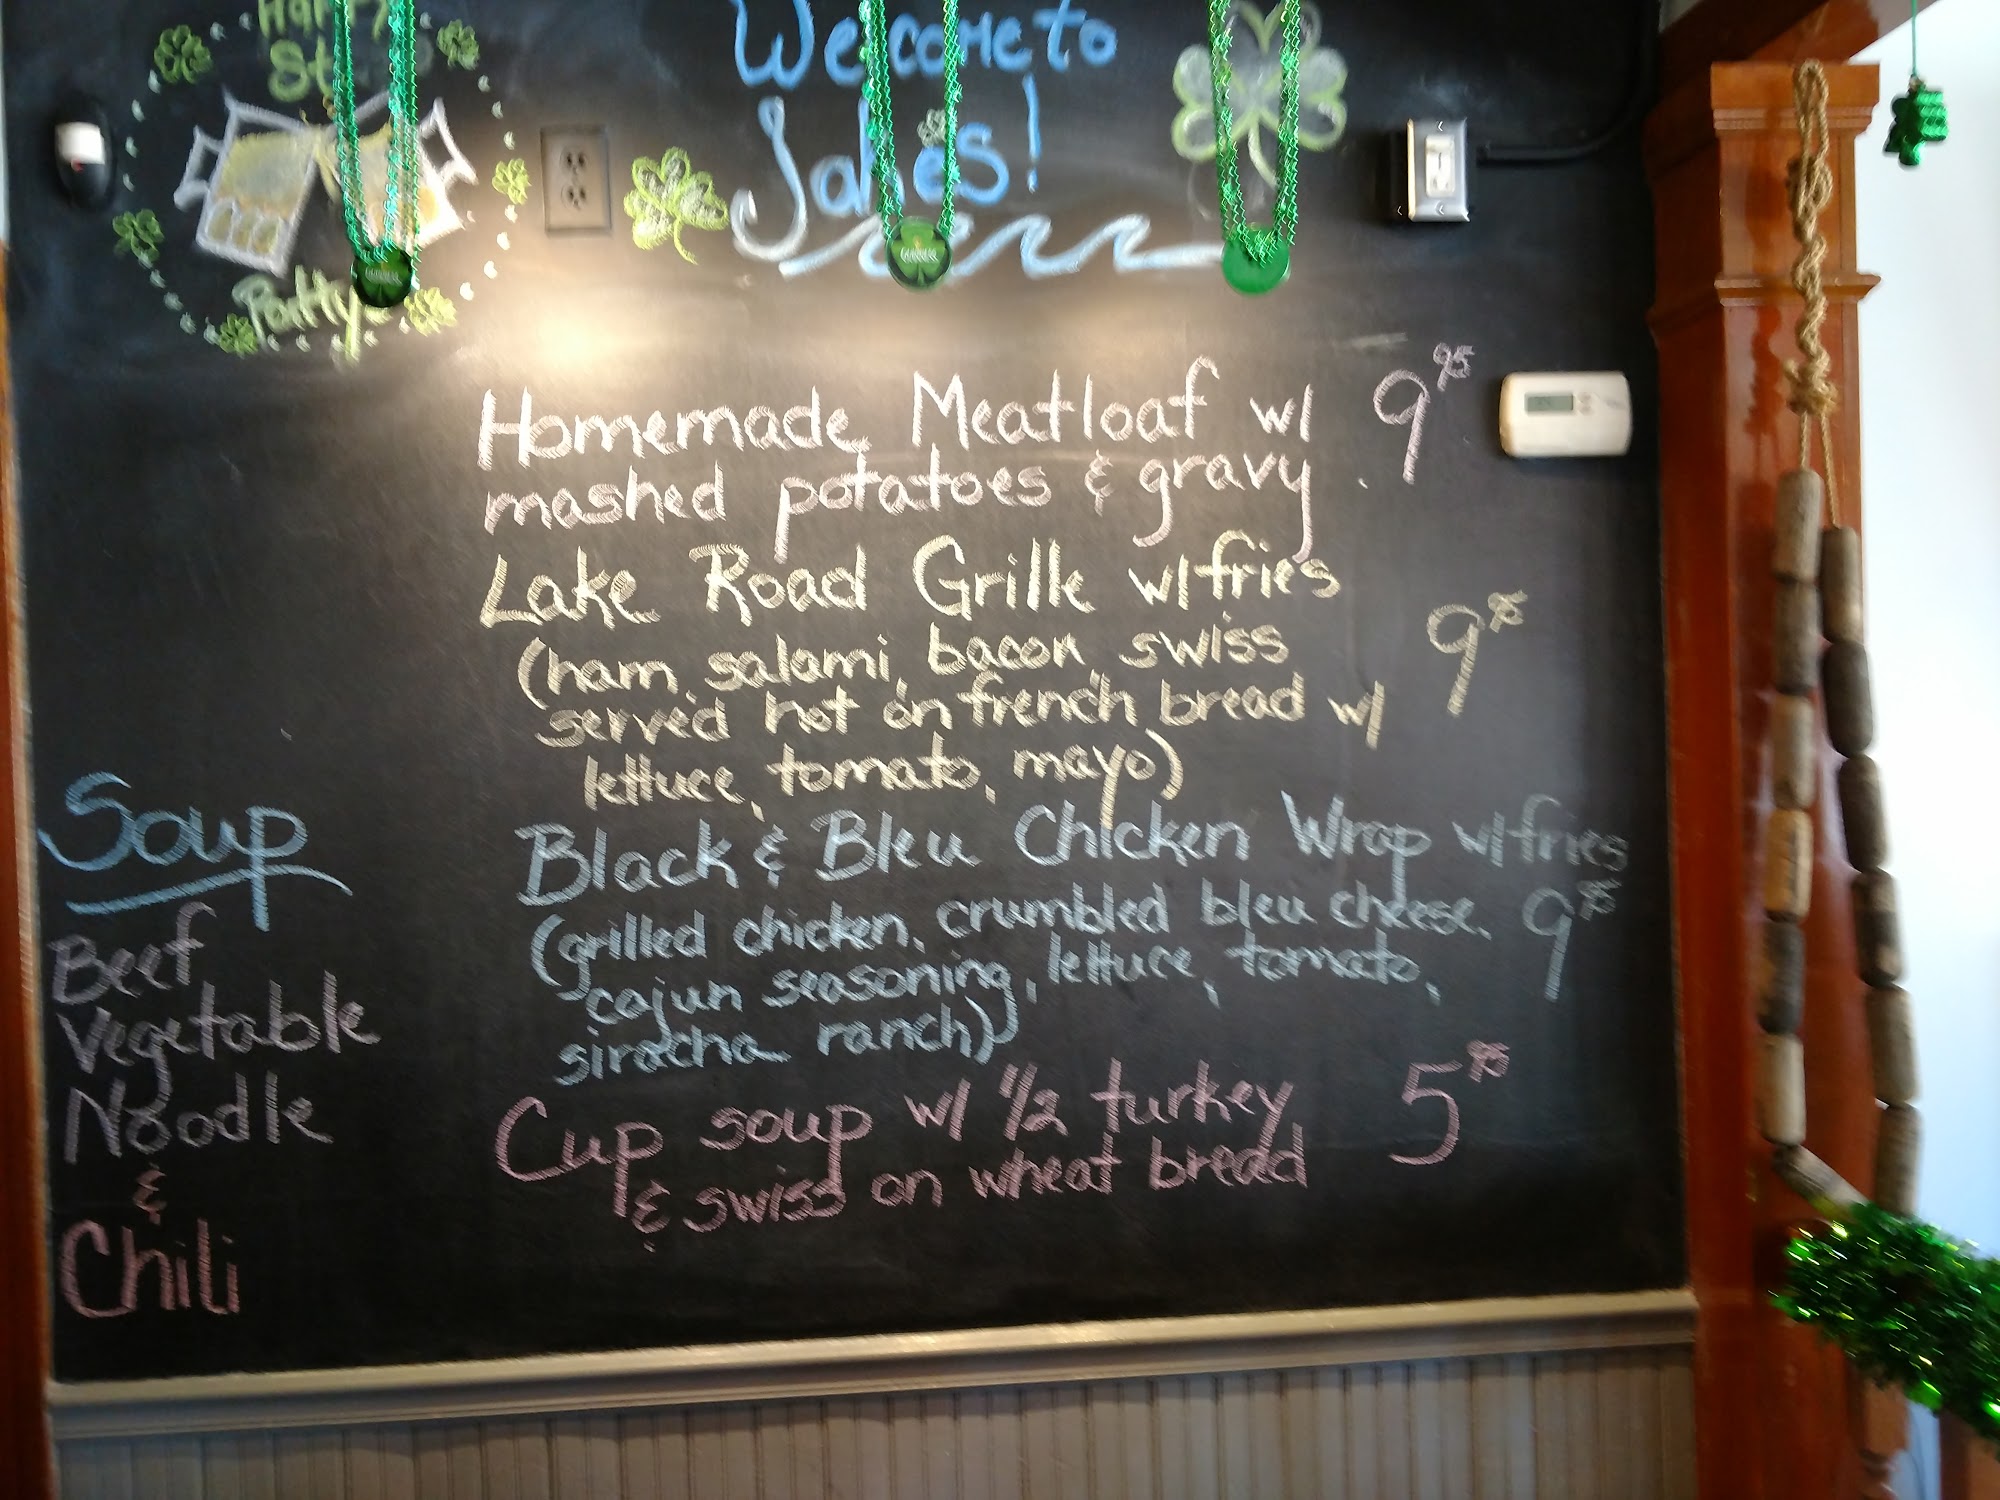 Happy
St
Patty
Welcome to
Jakes!
GUINNESS
Homemade Meatloaf w/ 9 95
mashed potatoes & gravy
Lake Road Grille w/ fries
(ham, salami, bacon, swiss 9 95
served hot on french bread w/
lettuce, tomato, mayo)
Black & Bleu Chicken Wrap w/ fries
(grilled chicken, crumbled bleu cheese, 9 95
cajun seasoning, lettuce, tomato,
siracha ranch)
Cup soup w/ 1/2 turkey 5 95
& swiss on wheat bread
Soup
Beef
Vegetable
Noodle
&
Chili